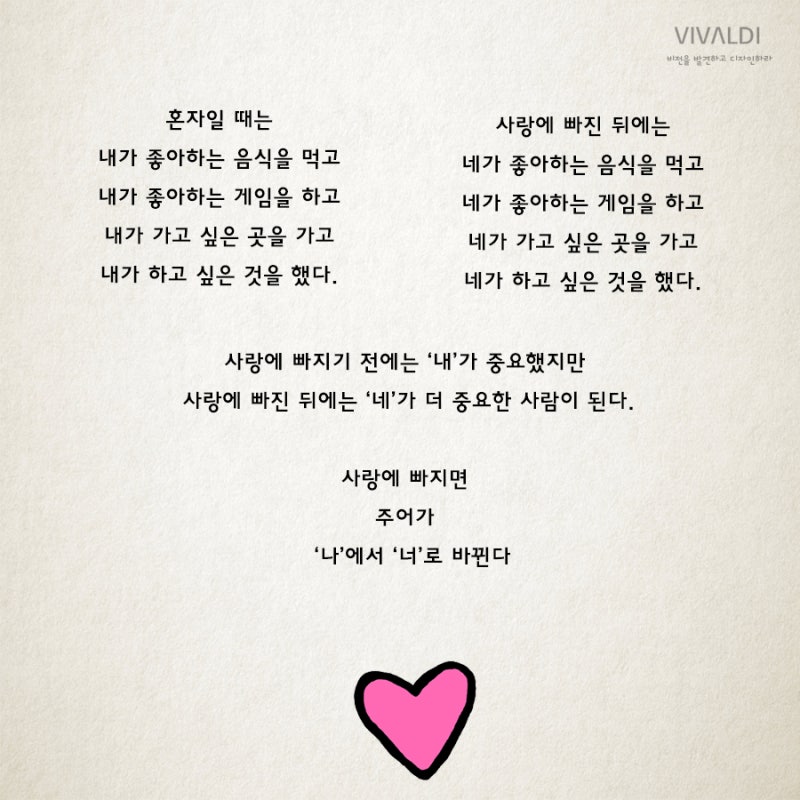 VIVALDI
비전을 발견하고 디자인하라
혼자일 때는
내가 좋아하는 음식을 먹고
내가 좋아하는 게임을 하고
내가 가고 싶은 곳을 가고
내가 하고 싶은 것을 했다.
사랑에 빠진 뒤에는
네가 좋아하는 음식을 먹고
네가 좋아하는 게임을 하고
네가 가고 싶은 곳을 가고
네가 하고 싶은 것을 했다.
사랑에 빠지기 전에는 ‘내’가 중요했지만
사랑에 빠진 뒤에는 ‘네’가 더 중요한 사람이 된다.
사랑에 빠지면
주어가
‘나’에서 ‘너’로 바뀐다